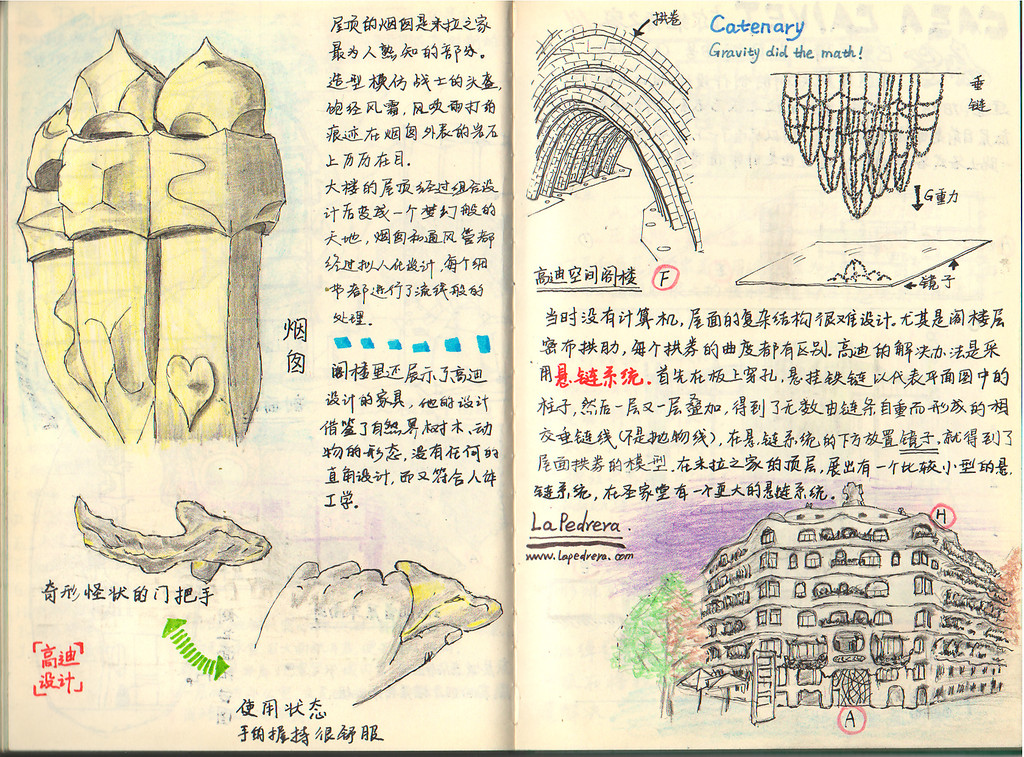 屋顶的烟囱是米拉之家
最为人熟知的部分。
造型模仿战士的头盔,
饱经风霜,风吹雨打的
痕迹在烟囱外表的岩石
上历历在目。
大楼的屋顶经过组合设
计后变成一个梦幻般的
天地,烟囱和通风管都
经过拟人化设计,每个细
节都进行了流线般的
处理。
烟囱
阁楼里还展示了高迪
设计的家具,他的设计
借鉴了自然界树木、动
物的形态,没有任何的
直角设计,而又符合人体
工学。
奇形怪状的门把手
高迪
设计
使用状态
手的握持很舒服
拱卷
Catenary
Gravity did the math!
垂链
G重力
镜子
高迪空间阁楼 F
当时没有计算机,屋面的复杂结构很难设计。尤其是阁楼层
密布拱肋,每个拱券的曲度都有区别。高迪的解决办法是采
用悬链系统。首先在板上穿孔,悬挂铁链以代表平面图中的
柱子,然后一层又一层叠加,得到了无数由链条自重而形成的相
交垂链线(不是抛物线),在悬链系统的下方放置镜子,就得到了
屋面拱券的模型。在米拉之家的顶层,展出有一个比较小型的悬
链系统,在圣家堂有一个更大的悬链系统。
La Pedrera.
www.lapedrera.com
H
A